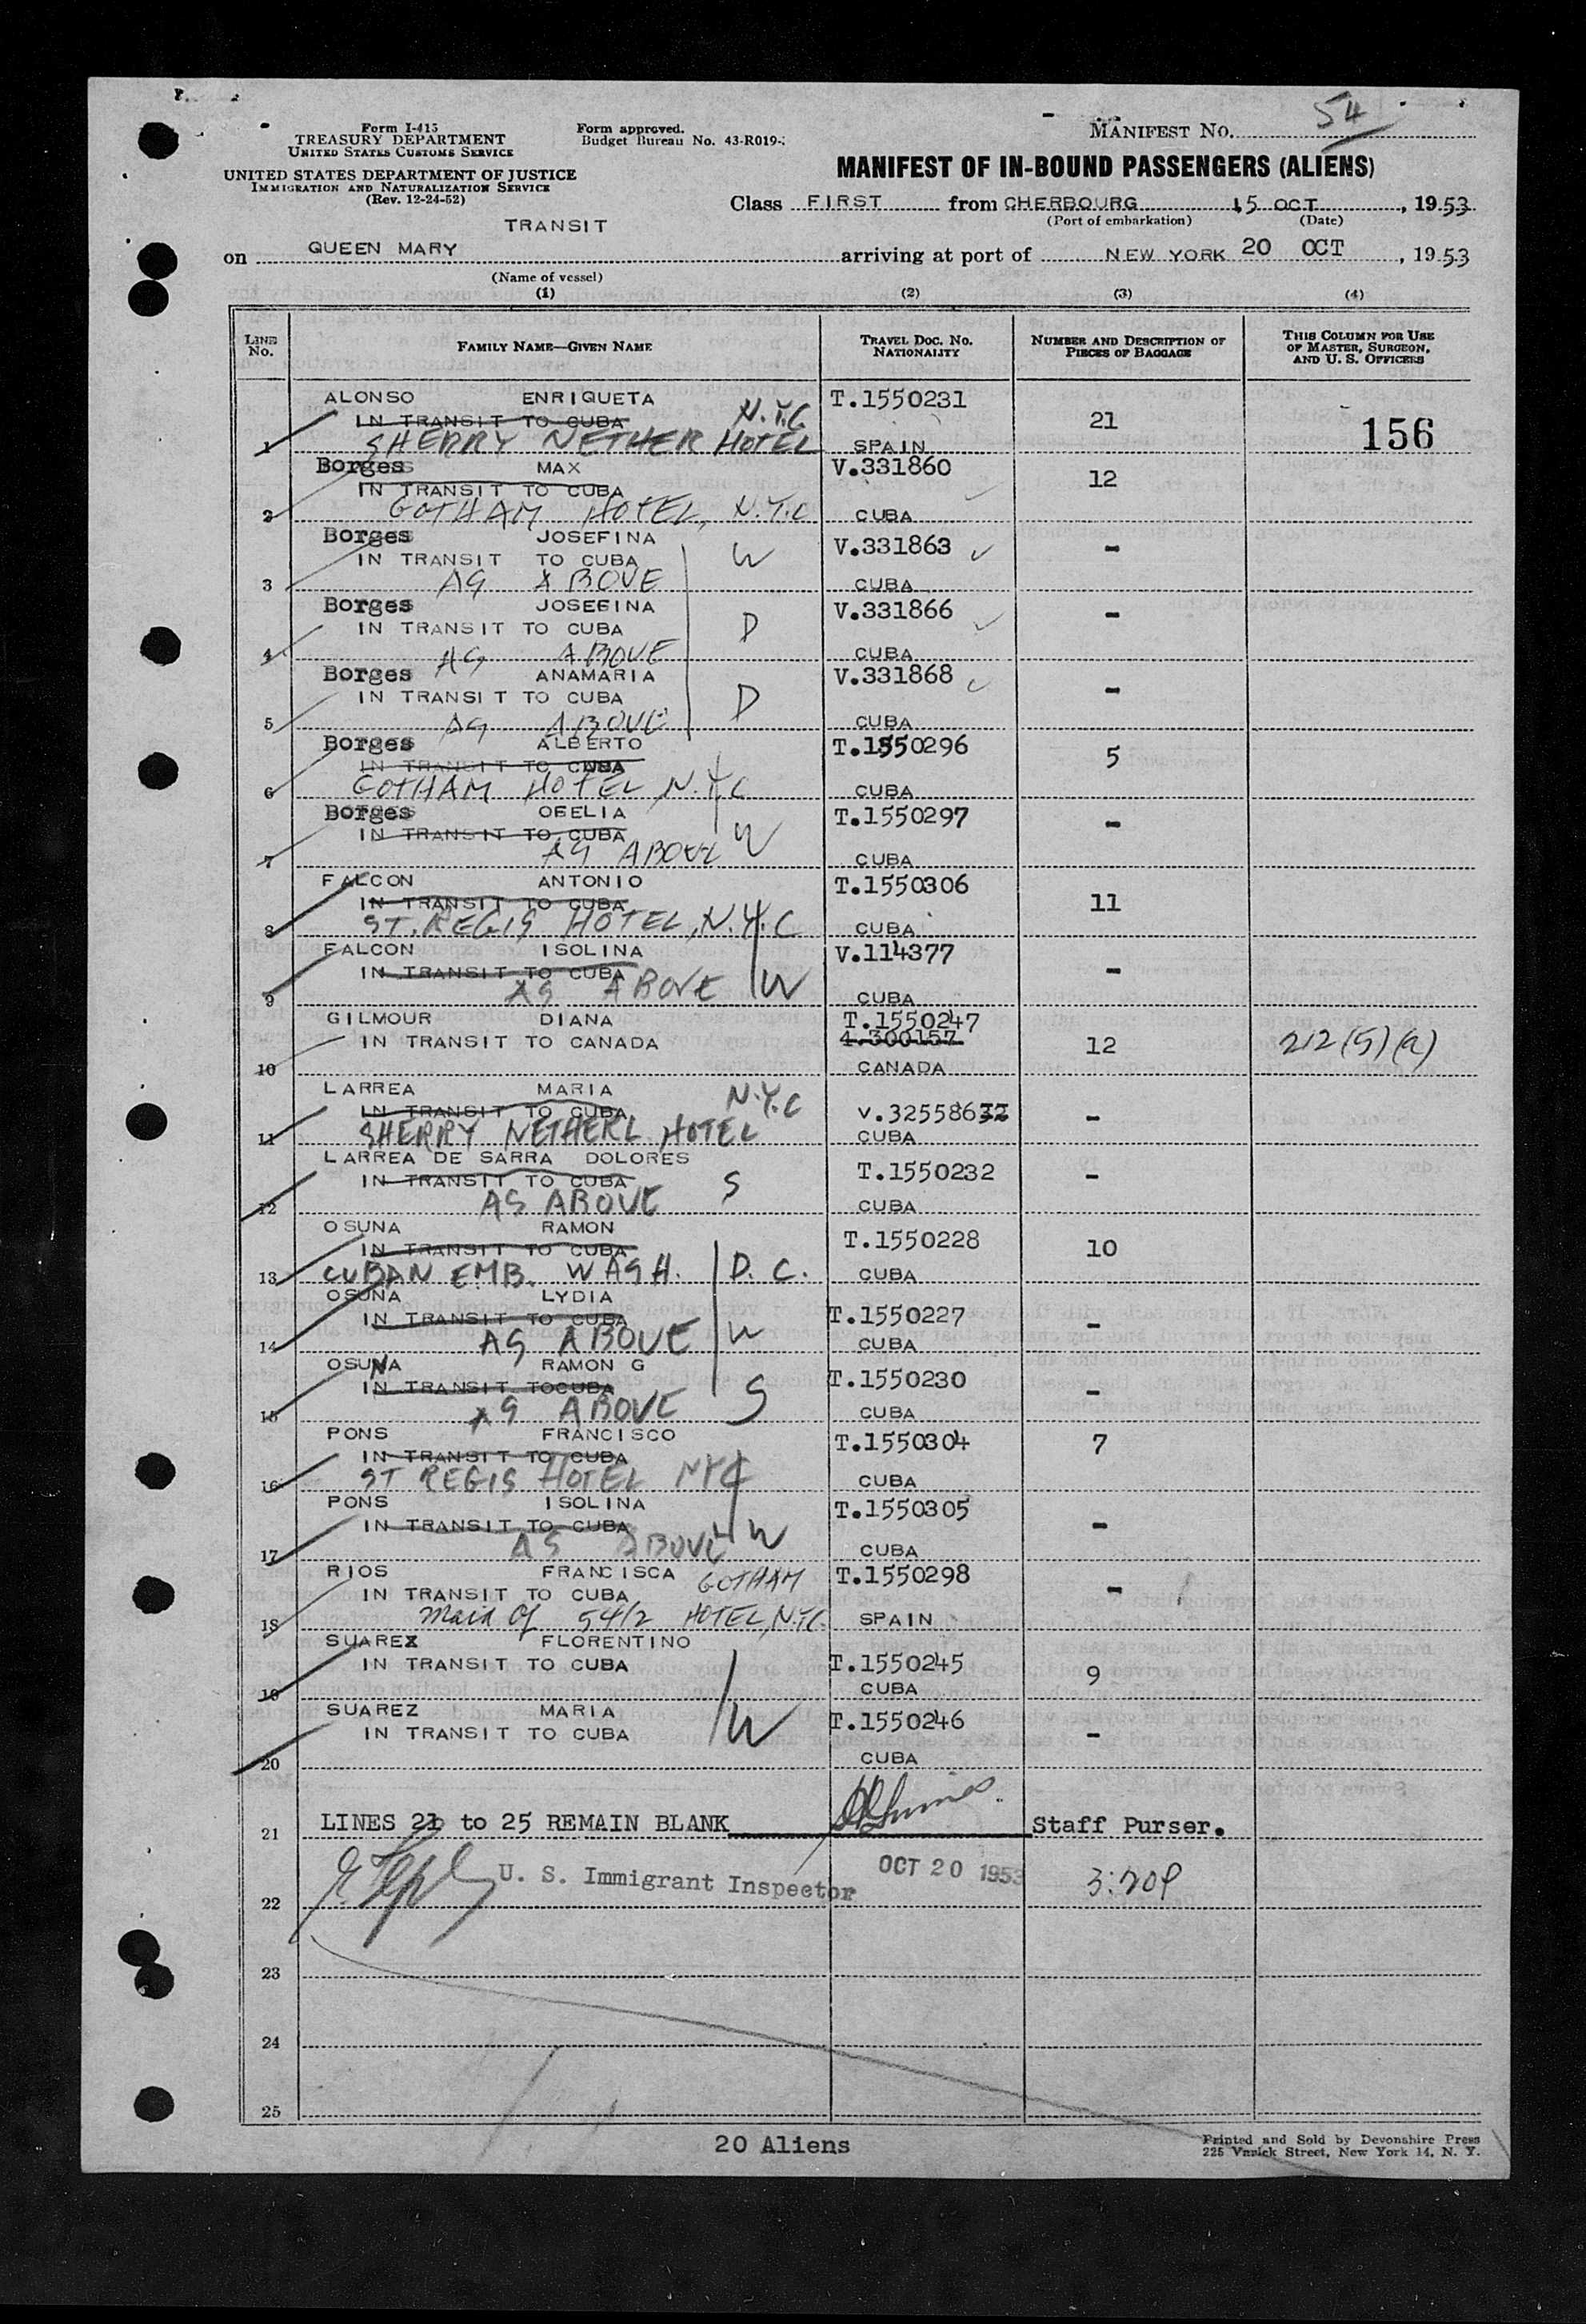 Form I-415
TREASURY DEPARTMENT
UNITED STATES CUSTOMS SERVICE
UNITED STATES DEPARTMENT OF JUSTICE
IMMIGRATION AND NATURALIZATION SERVICE
(Rev. 12-24-52)
Form approved.
Budget Bureau No. 43-R019-
MANIFEST NO. 54
MANIFEST OF IN-BOUND PASSENGERS (ALIENS)
Class FIRST from CHERBOURG 15 OCT, 1953
(Port of embarkation) (Date)
TRANSIT
on QUEEN MARY arriving at port of NEW YORK 20 OCT, 1953
(Name of vessel)
(1) (2) (3) (4)
LINE No. FAMILY NAME—GIVEN NAME TRAVEL DOC. NO. NATIONALITY NUMBER AND DESCRIPTION OF PIECES OF BAGGAGE THIS COLUMN FOR USE OF MASTER, SURGEON, AND U. S. OFFICERS
ALONSO ENRIQUETA T.1550231
IN TRANSIT TO CUBA N.Y.C 21 156
1 SHERRY NETHER HOTEL SPAIN
Borges MAX V.331860
IN TRANSIT TO CUBA 12
2 GOTHAM HOTEL, N.Y.C CUBA
Borges JOSEFINA V.331863
IN TRANSIT TO CUBA W -
3 AS ABOVE CUBA
Borges JOSEFINA V.331866
IN TRANSIT TO CUBA D -
4 AS ABOVE CUBA
Borges ANAMARIA V.331868
IN TRANSIT TO CUBA D -
5 AS ABOVE CUBA
Borges ALBERTO T.1550296
IN TRANSIT TO CUBA 5
6 GOTHAM HOTEL N.Y.C CUBA
Borges OFELIA T.1550297
IN TRANSIT TO CUBA W -
7 AS ABOVE CUBA
FALCON ANTONIO T.1550306
IN TRANSIT TO CUBA 11
8 ST. REGIS HOTEL, N.Y.C CUBA
FALCON ISOLINA V.114377
IN TRANSIT TO CUBA -
9 AS ABOVE W CUBA
GILMOUR DIANA T.1550247
IN TRANSIT TO CANADA 4.300157 12 212(5)(a)
10 CANADA
LARREA MARIA N.Y.C
IN TRANSIT TO CUBA V.3255863 -
11 SHERRY NETHERL HOTEL CUBA
LARREA DE SARRA DOLORES T.1550232
IN TRANSIT TO CUBA S -
12 AS ABOVE CUBA
OSUNA RAMON T.1550228
IN TRANSIT TO CUBA 10
13 CUBAN EMB. WASH. D. C. CUBA
OSUNA LYDIA T.1550227
IN TRANSIT TO CUBA -
14 AS ABOVE W CUBA
OSUNA RAMON G T.1550230
IN TRANSIT TOCUBA -
15 AS ABOVE S CUBA
PONS FRANCISCO T.1550304 7
IN TRANSIT TO CUBA
16 ST REGIS HOTEL NYC CUBA
PONS ISOLINA T.1550305
IN TRANSIT TO CUBA -
17 AS ABOVE W CUBA
RIOS FRANCISCA GOTHAM T.1550298
IN TRANSIT TO CUBA -
18 maid of 54/2 HOTEL, N.Y.C. SPAIN
SUAREZ FLORENTINO
IN TRANSIT TO CUBA T.1550245 9
19 CUBA
SUAREZ MARIA T.1550246
IN TRANSIT TO CUBA W -
20 CUBA
21 LINES 21 to 25 REMAIN BLANK Staff Purser.
22 U. S. Immigrant Inspector OCT 20 1953 3:20P
23
24
25
20 Aliens
Printed and Sold by Devonshire Press
225 Varick Street, New York 14, N. Y.